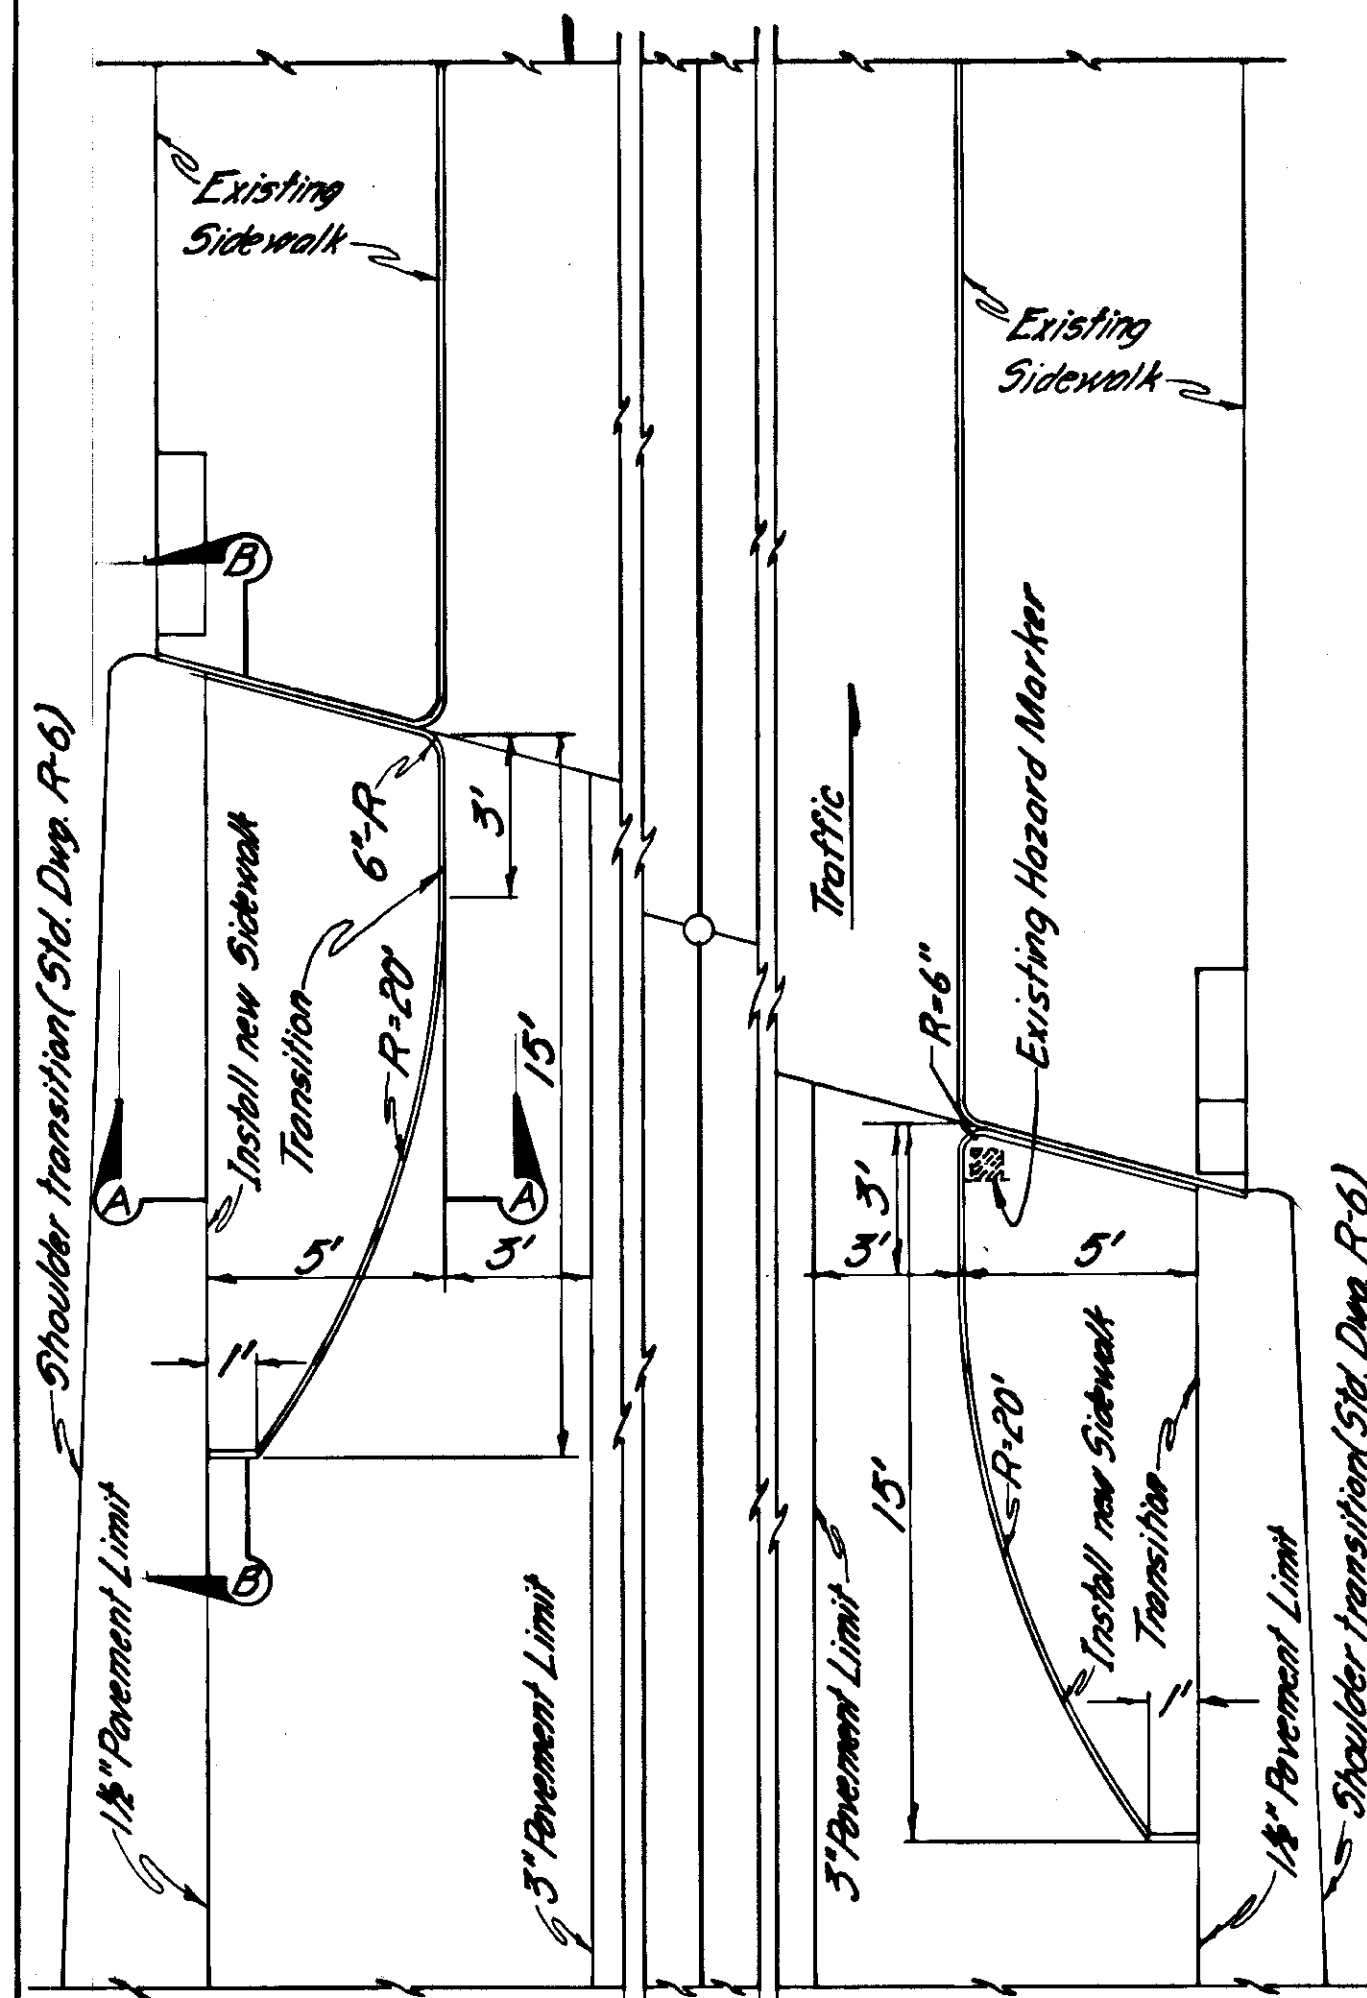 Existing
Sidewalk
Existing
Sidewalk
B
Shoulder transition (Std. Dwg. R-6)
Install new Sidewalk
Transition
6"-R
3'
R=20'
15'
A
A
5'
3'
1'
B
1½" Pavement Limit
3" Pavement Limit
Traffic
R=6"
Existing Hazard Marker
3'
3'
5'
15'
R=20'
Install new Sidewalk
Transition
1'
3" Pavement Limit
1½" Pavement Limit
Shoulder transition (Std. Dwg. R-6)